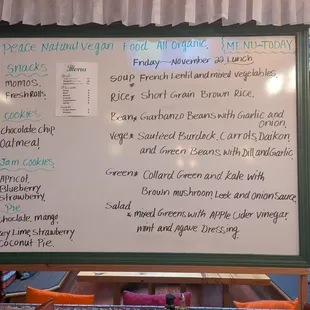 Peace Natural Vegan Food All Organic. MENU-TODAY
Friday - November 22 Lunch
Snacks
momos,
Fresh Rolls
cookies
chocolate chip
Oatmeal
Jam cookies
Apricot,
Blueberry
Strawberry
Pie
chocolate, mango
Key Lime, Strawberry
Coconut Pie.
Menu
Soup: French Lentil and mixed vegetables,
Rice: Short Grain Brown Rice,
Bean: Garbanzo Beans with Garlic and
onion,
Vege: Sauteed Burdock, Carrots, Daikon
and Green Beans, with Dill and Garlic
Green: Collard Green and Kale with
Brown mushroom, Leek and onion Sauce,
Salad
mixed Greens with Apple Cider vinegar
mint and Agave Dressing.